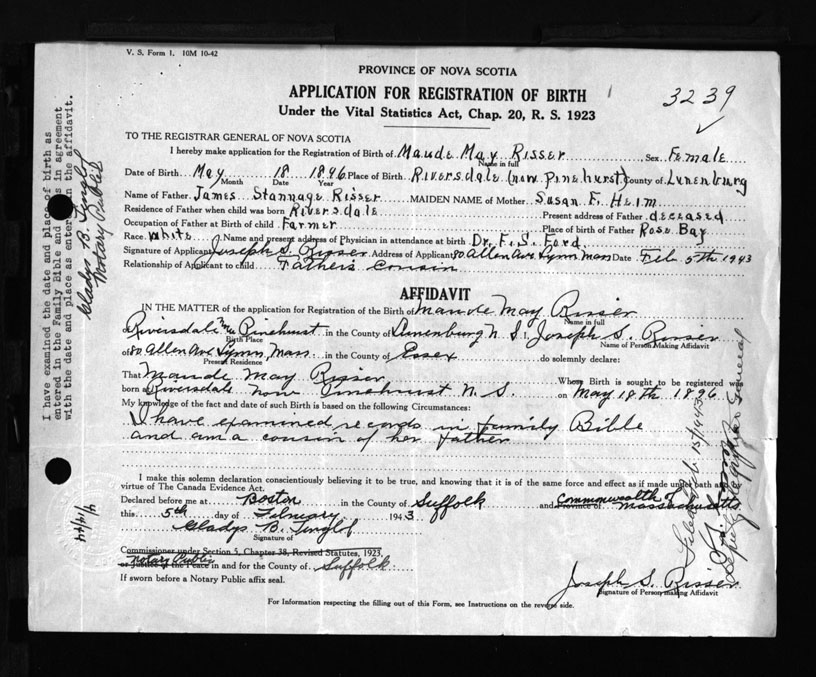 V. S. Form 1. 10M 10-42
PROVINCE OF NOVA SCOTIA
APPLICATION FOR REGISTRATION OF BIRTH
3239
Under the Vital Statistics Act, Chap. 20, R. S. 1923
TO THE REGISTRAR GENERAL OF NOVA SCOTIA
I hereby make application for the Registration of Birth of Maude May Risser Sex Female
Name in full
Date of Birth May 18 1896 Place of Birth Riversdale (now Pinehurst) County of Lunenburg
Month Date Year
Name of Father James Stannage Risser MAIDEN NAME of Mother Susan F. Heim
Residence of Father when child was born Riversdale Present address of Father deceased
Occupation of Father at Birth of child Farmer Place of birth of Father Rose Bay
Race White Name and present address of Physician in attendance at birth Dr. F. S. Ford
Signature of Applicant Joseph S. Risser Address of Applicant 80 Allen Ave Lynn Mass Date Feb 5th 1943
Relationship of Applicant to child Father's Cousin
AFFIDAVIT
IN THE MATTER of the application for Registration of the Birth of Maude May Risser
Name in full
of Riversdale now Pinehurst in the County of Lunenburg N. S. I, Joseph S. Risser
Birth Place Name of Person Making Affidavit
of 80 Allen Ave Lynn, Mass. in the County of Essex do solemnly declare:
Present Residence
That Maude May Risser Whose Birth is sought to be registered was
born at Riversdale now Pinehurst N. S. on May 18th 1896
My knowledge of the fact and date of such Birth is based on the following Circumstances:
I have examined records in family Bible
and am a cousin of her father
I make this solemn declaration conscientiously believing it to be true, and knowing that it is of the same force and effect as if made under oath and by
virtue of The Canada Evidence Act.
Declared before me at Boston in the County of Suffolk and Province of Commonwealth of Massachusetts
this 5th day of February 1943
Gladys B. Tinglof
Signature of
Commissioner under Section 5, Chapter 38, Revised Statutes, 1923,
Notary Public
or Justice of the Peace in and for the County of Suffolk
If sworn before a Notary Public affix seal.
Joseph S. Risser
Signature of Person making Affidavit
For Information respecting the filling out of this Form, see Instructions on the reverse side.
I have examined the date and place of birth as
entered in the Family Bible and is in agreement
with the date and place as entered in the affidavit.
Gladys B. Tinglof
Notary Public
4/4/44
Filed 1st/1943
Deputy Registrar General